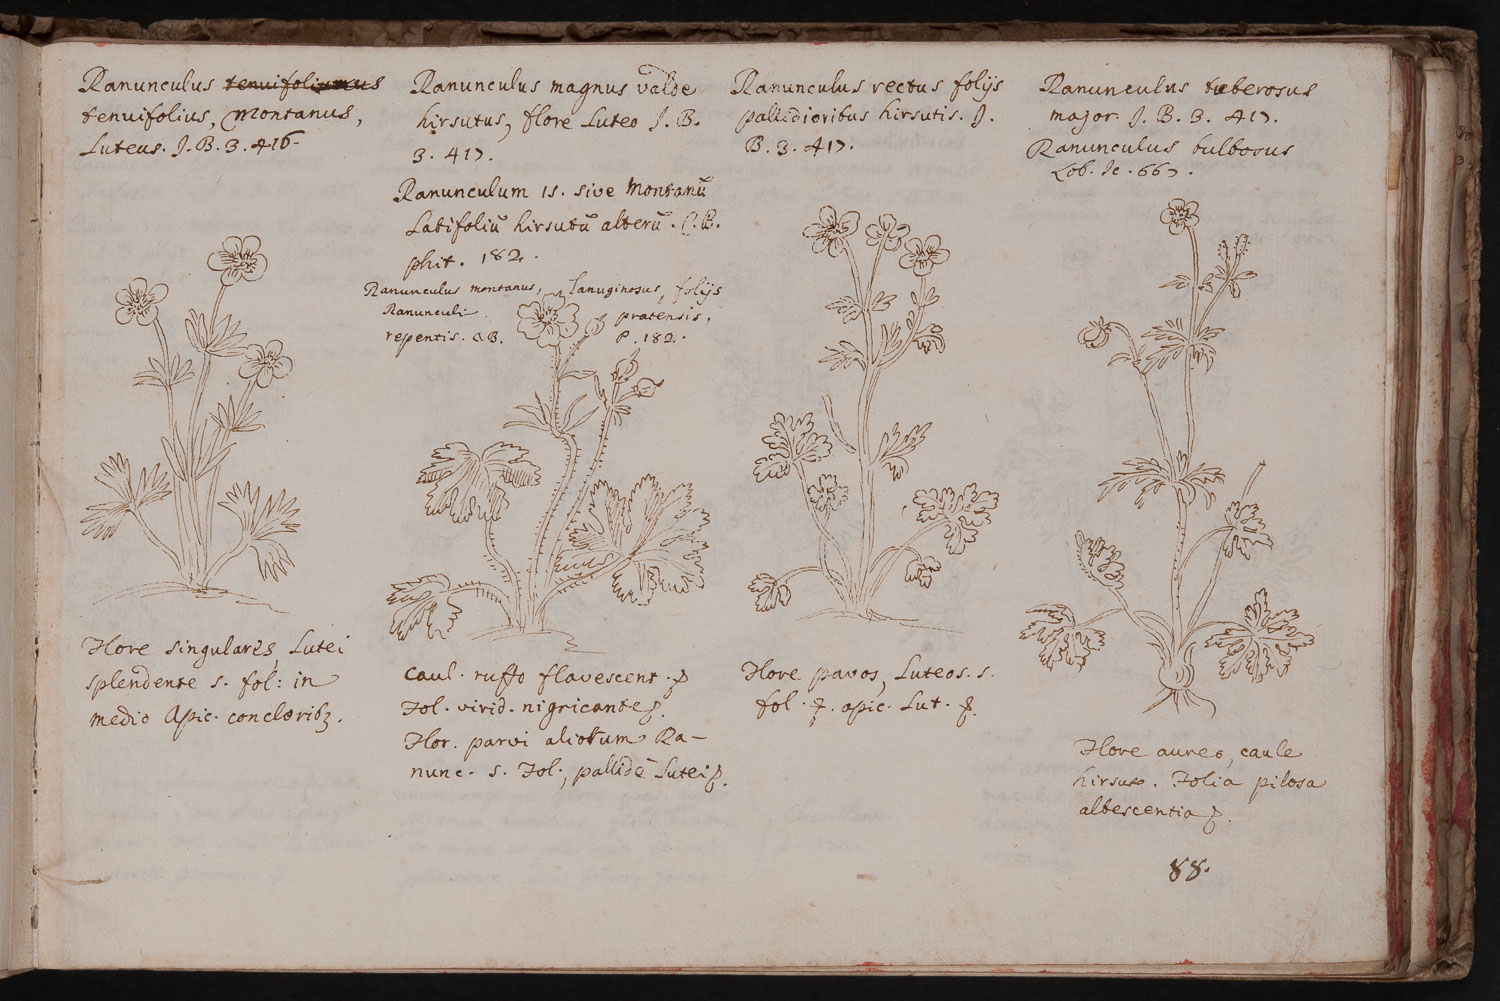 Ranunculus tenuifoliumus
tenuifolius, montanus,
Luteus. J. B. 3. 416.
Flore singularis, Lutei
splendente s. fol: in
medio Apic. concloribz.
Ranunculus magnus valde
hirsutus, flore Luteo J. B.
3. 417.
Ranunculum is. sive Montanū
Latifoliū hirsutū alterū. C. B.
phit. 182.
Ranunculus montanus, Lanuginosus, folijs
Ranunculi pratensis,
repentis. C B. P. 182.
Caul. ruffo flavescent.
Fol. virid. nigricante
Flor. parvi aliorum Ra-
nunc. s. Fol., pallidé Lutei
Ranunculus rectus folijs
pallidioribus hirsutis. J.
B. 3. 417.
Flore pavos, Luteos. s.
fol. apic. Lut.
Ranunculus tuberosus
major. J. B. 3. 417.
Ranunculus bulbosus
Lob. Ic. 667.
Flore aureo, caule
hirsuto. Folia pilosa
albescentia
88.